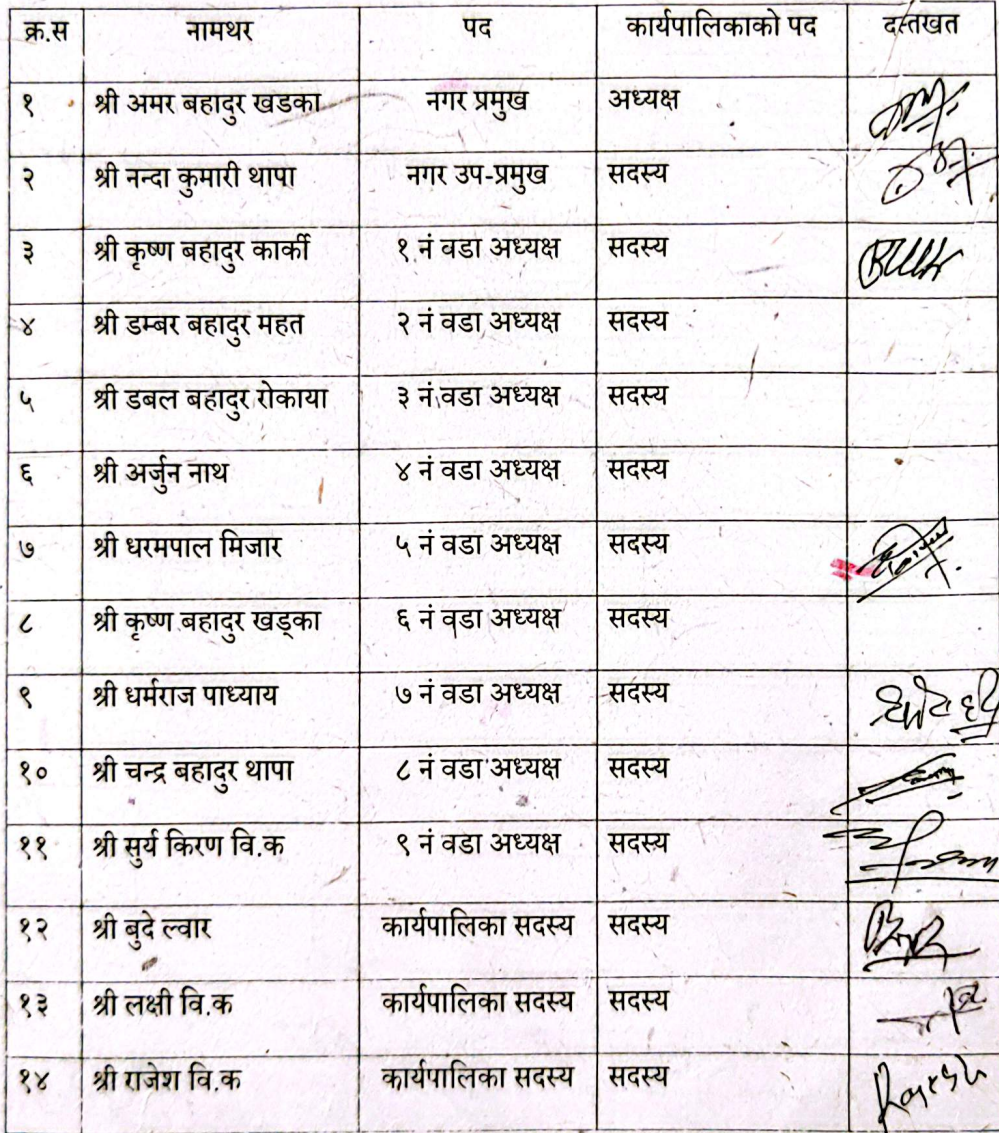 क्र.स नामथर पद कार्यपालिकाको पद दस्तखत
१ श्री अमर बहादुर खडका नगर प्रमुख अध्यक्ष
२ श्री नन्दा कुमारी थापा नगर उप-प्रमुख सदस्य
३ श्री कृष्ण बहादुर कार्की १ नं वडा अध्यक्ष सदस्य
४ श्री डम्बर बहादुर महत २ नं वडा अध्यक्ष सदस्य
५ श्री डबल बहादुर रोकाया ३ नं वडा अध्यक्ष सदस्य
६ श्री अर्जुन नाथ ४ नं वडा अध्यक्ष सदस्य
७ श्री धरमपाल मिजार ५ नं वडा अध्यक्ष सदस्य
८ श्री कृष्ण बहादुर खड्का ६ नं वडा अध्यक्ष सदस्य
९ श्री धर्मराज पाध्याय ७ नं वडा अध्यक्ष सदस्य
१० श्री चन्द्र बहादुर थापा ८ नं वडा अध्यक्ष सदस्य
११ श्री सुर्य किरण वि.क ९ नं वडा अध्यक्ष सदस्य
१२ श्री बुदे ल्वार कार्यपालिका सदस्य सदस्य
१३ श्री लक्षी वि.क कार्यपालिका सदस्य सदस्य
१४ श्री राजेश वि.क कार्यपालिका सदस्य सदस्य